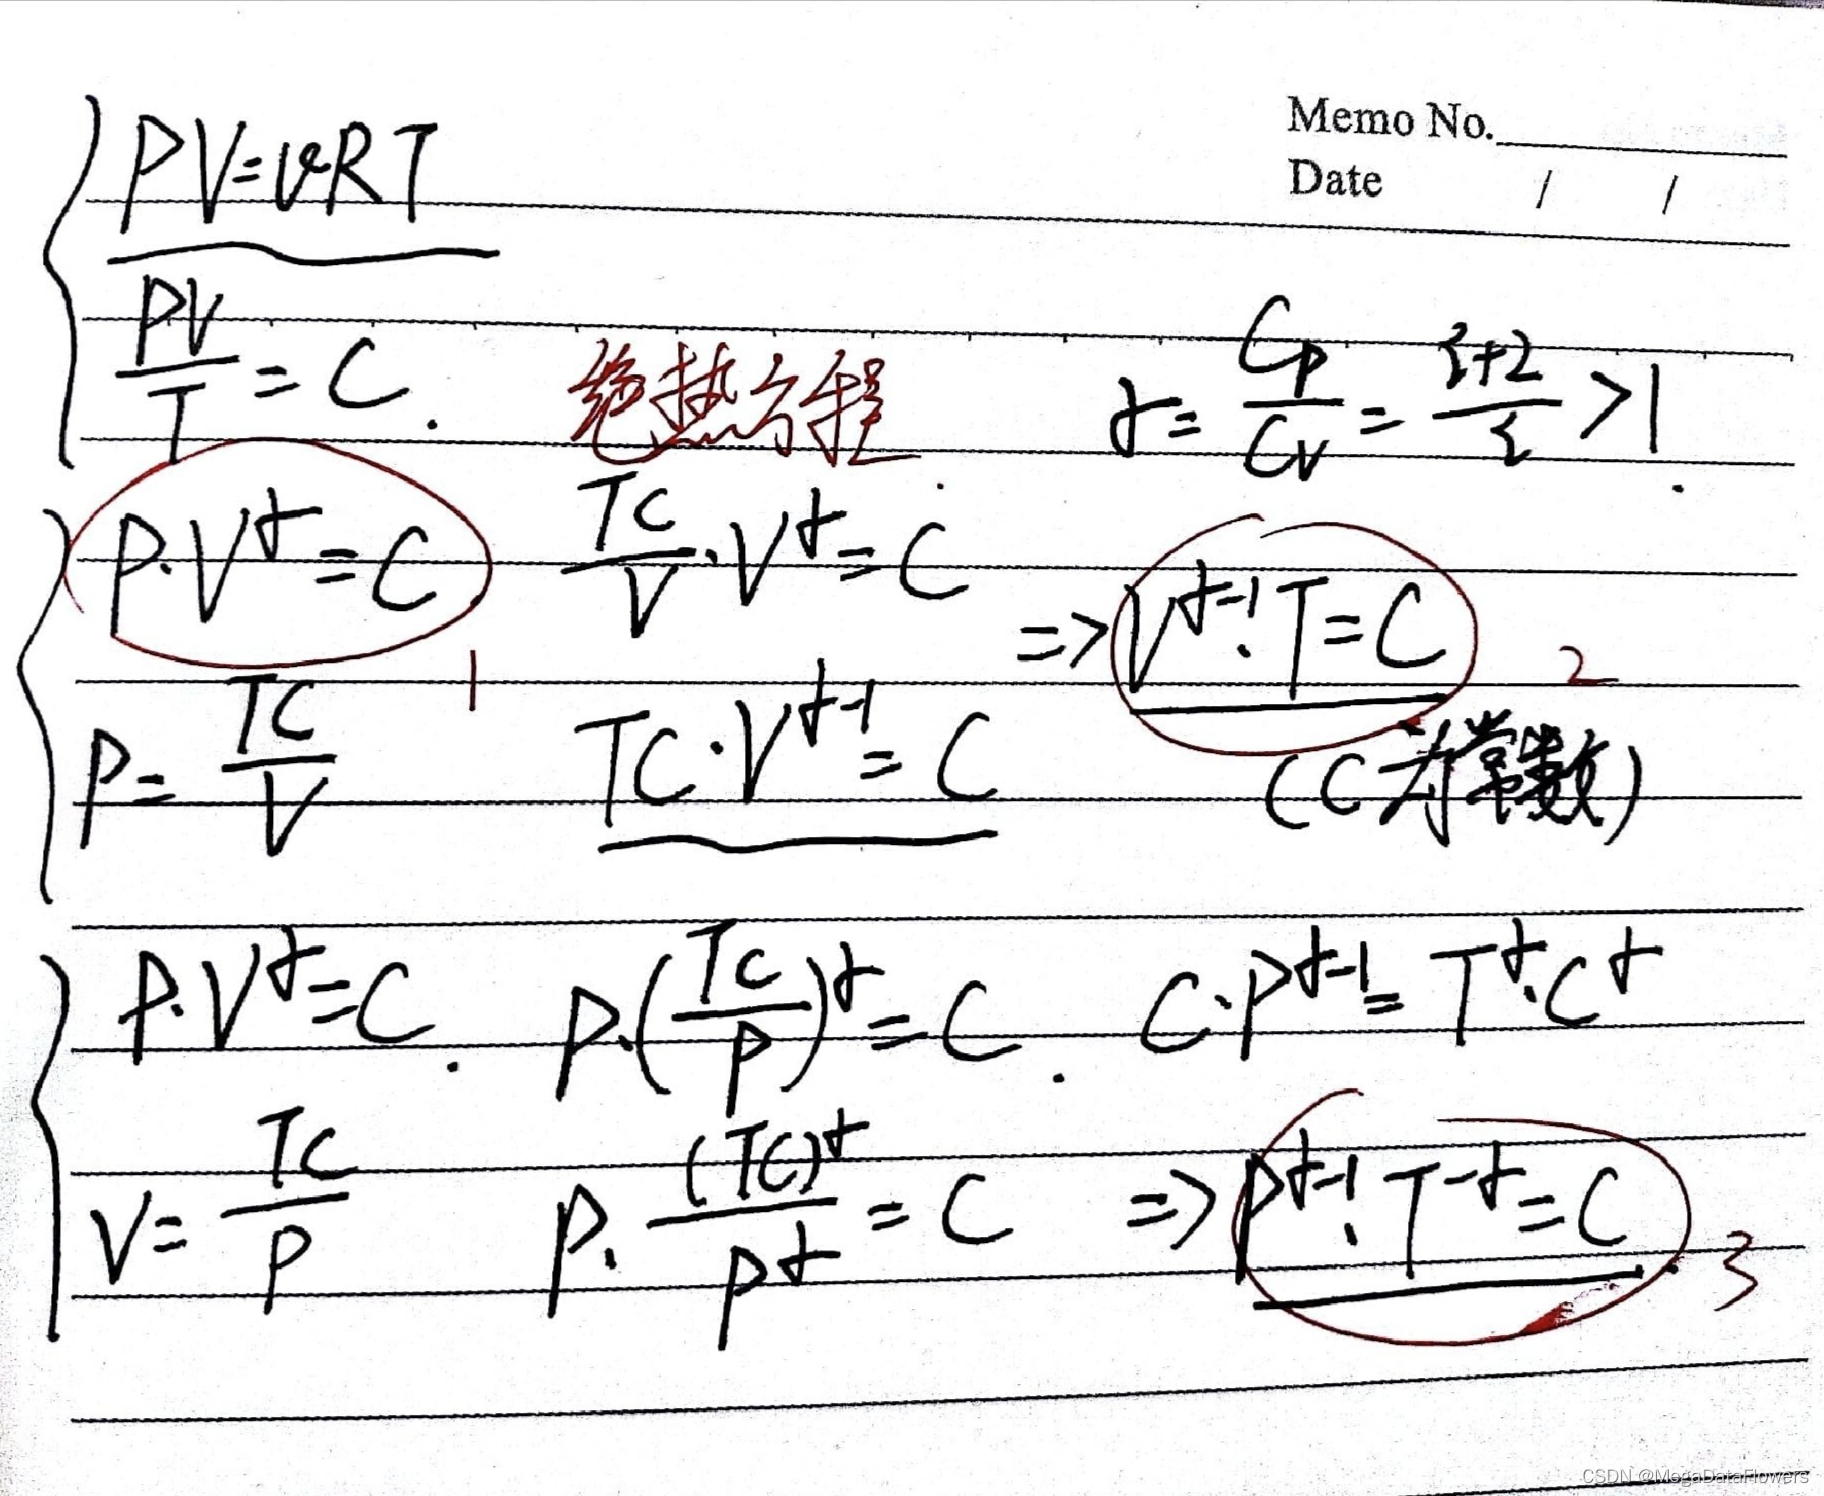 Memo No.
Date / /
PV=νRT
PV/T = C.
绝热方程
γ = Cp/Cv = (i+2)/i >1.
P·V^γ = C
1
TC/V · V^γ = C
=> V^(γ-1)·T = C
2
P = TC/V
TC·V^(γ-1) = C
(C为常数)
P·V^γ = C.
P·(TC/P)^γ = C.
C·P^(γ-1) = T^γ·C^γ
V = TC/P
P·(TC)^γ/P^γ = C
=> P^(γ-1)·T^(-γ) = C.
3
CSDN @MegaDataFlowers